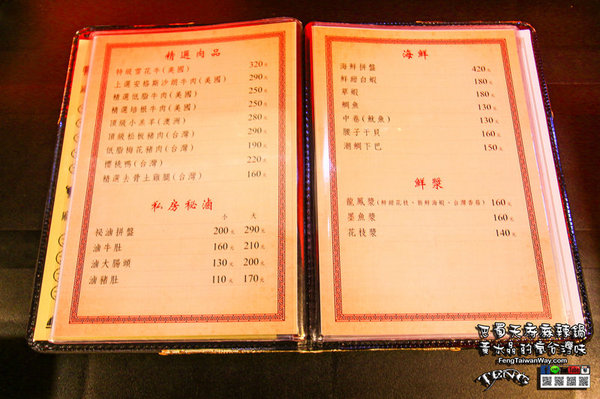 精選肉品
特級雪花牛(美國) 320元
上選安格斯沙朗牛肉(美國) 290元
精選低脂牛肉(美國) 250元
精選培根牛肉(美國) 250元
頂級小羔羊(澳洲) 280元
頂級松板豬肉(台灣) 290元
低脂梅花豬肉(台灣) 190元
櫻桃鴨(台灣) 220元
精選去骨土雞腿(台灣) 160元
私房秘滷
小 大
祕滷拼盤 200元 290元
滷牛肚 160元 210元
滷大腸頭 130元 200元
滷豬肚 110元 170元
海鮮
海鮮拼盤 420元
鮮甜白蝦 180元
草蝦 180元
鯛魚 130元
中卷(魷魚) 130元
腰子干貝 160元
潮鯛下巴 150元
鮮漿
龍鳳漿(鮮甜花枝、新鮮海蝦、台灣香菇) 160元
墨魚漿 160元
花枝漿 140元
FengTaiwanWay.com
TENG